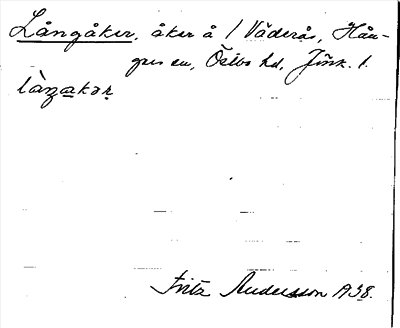 Långåker, åker å 1 Väderås, Hån-
ger sn, Östbo hd, Jönk. l.
làŋakər
Fritz Andersson 1938.